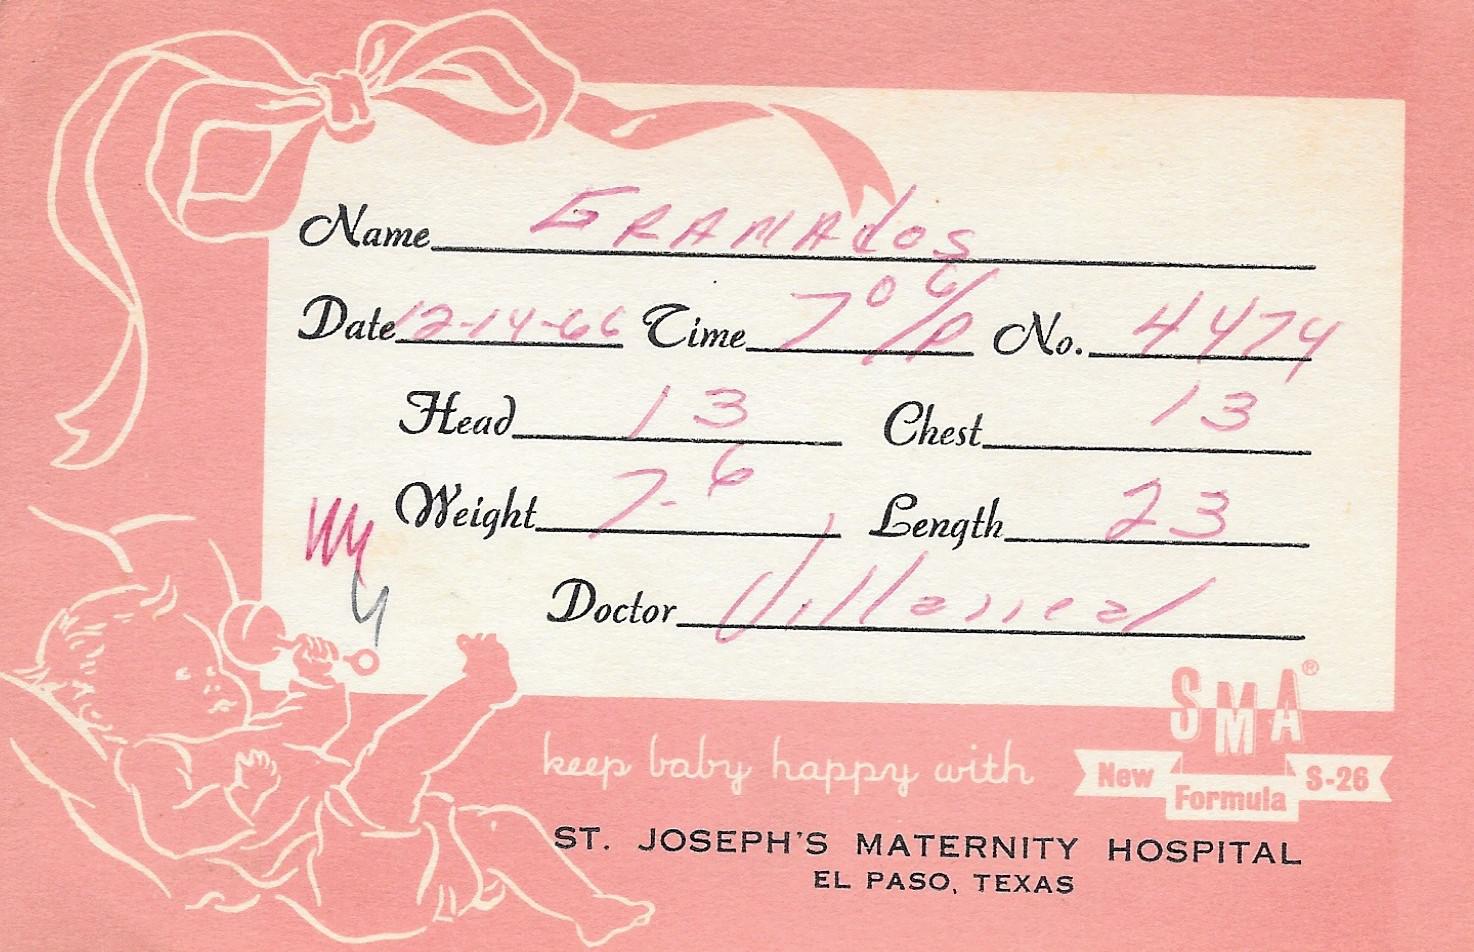 Name GRANAdos
Date 12-14-66 Time 7 06/P No. 4474
Head 13 Chest 13
Weight 7-6 Length 23
Doctor Villarreal
SMA®
keep baby happy with New Formula S-26
ST. JOSEPH'S MATERNITY HOSPITAL
EL PASO, TEXAS